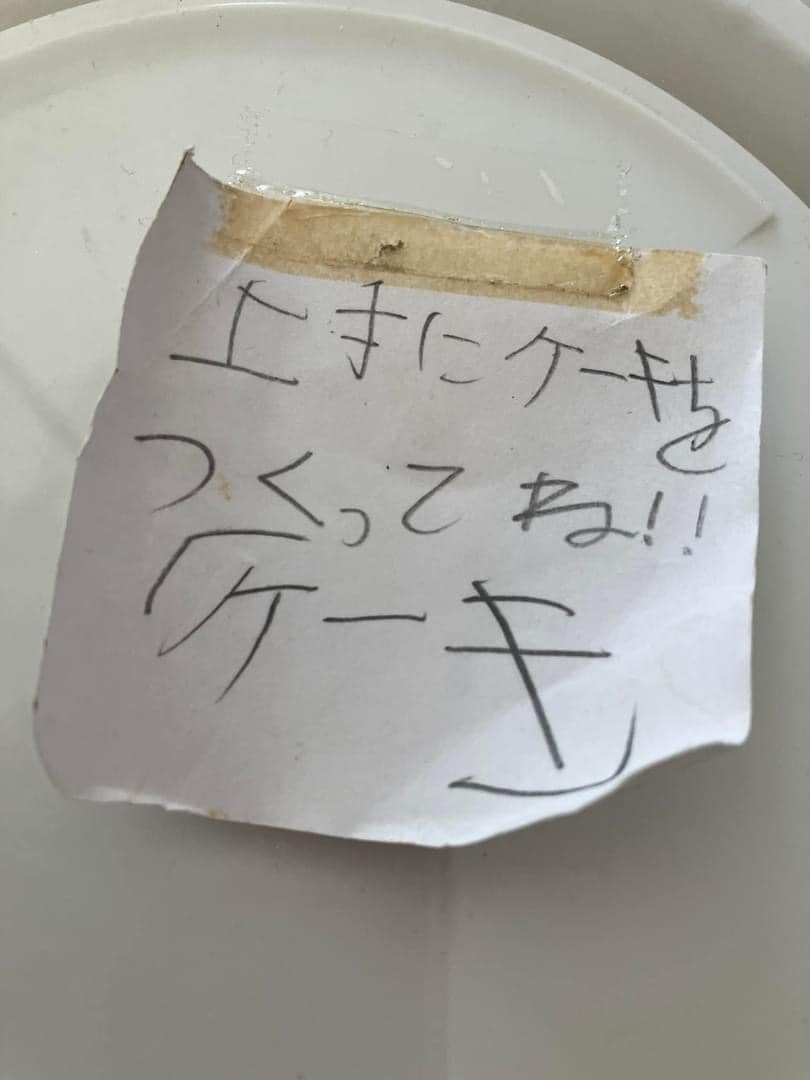 上手にケーキを
つくってね!!
「ケーキ」